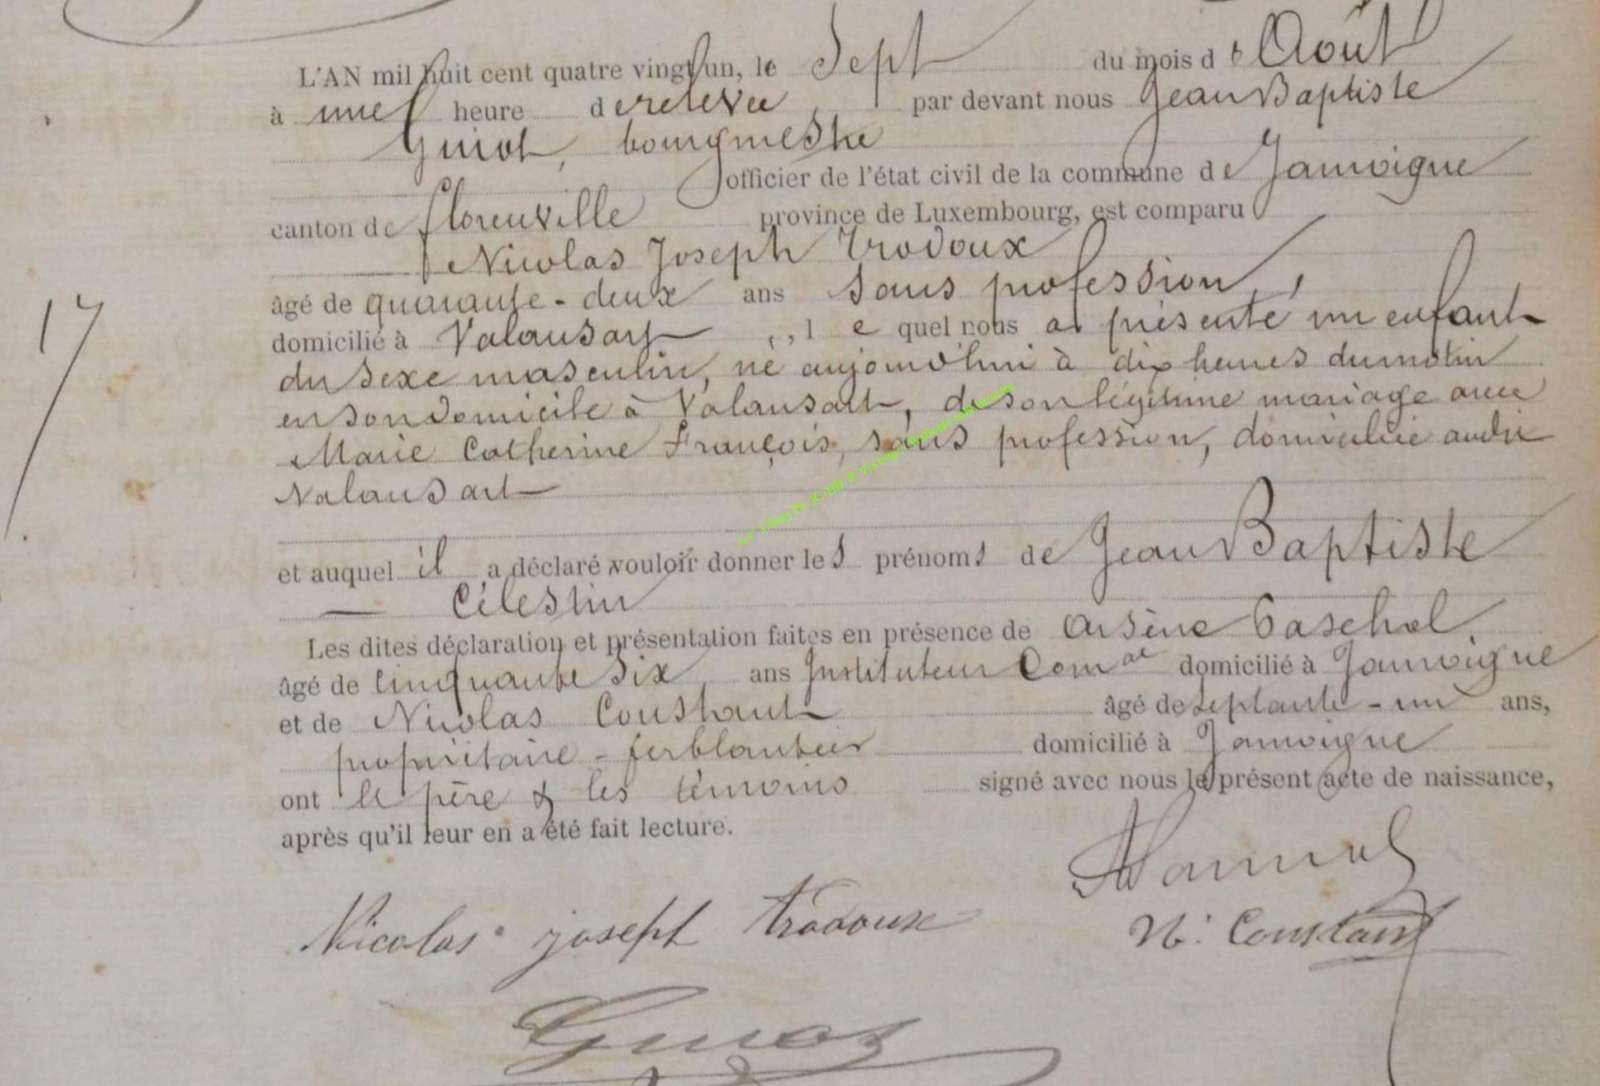 L'AN mil huit cent quatre vingt un, le Sept du mois d'Août
à une heure de relevée, par devant nous Jean Baptiste
Guiot, bourgmestre
officier de l'état civil de la commune de Jamoigne
canton de Florenville province de Luxembourg, est comparu
Nicolas Joseph Trodoux
âgé de quarante-deux ans sans profession,
17
domicilié à Valansart, lequel nous a présenté un enfant
du sexe masculin, né aujourd'hui à dix heures du matin
en son domicile à Valansart, de son légitime mariage avec
Marie Catherine François, sans profession, domiciliée audit
Valansart
et auquel il a déclaré vouloir donner les prénoms de Jean Baptiste
Célestin
Les dites déclaration et présentation faites en présence de Arsène
âgé de cinquante six ans Instituteur Comal domicilié à Jamoigne
et de Nicolas Constant âgé de septante-un ans,
propriétaire-ferblantier domicilié à Jamoigne
ont le père & les témoins signé avec nous le présent acte de naissance,
après qu'il leur en a été fait lecture.
Nicolas joseph trodoux
N. Constant